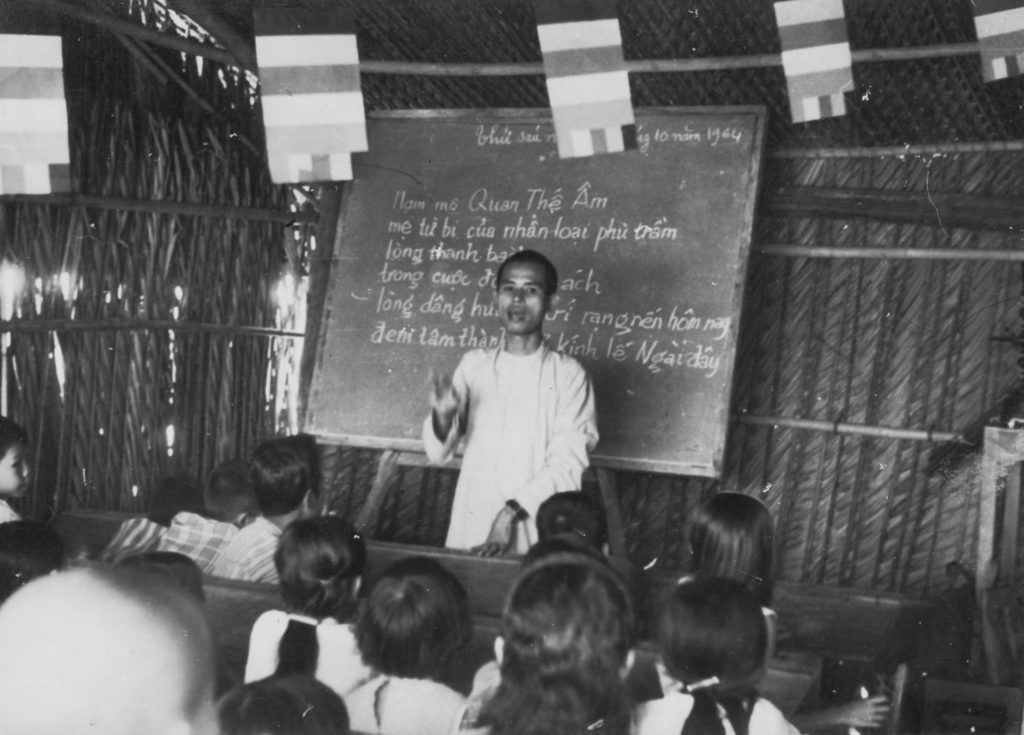 thứ sáu 10 năm 1964
Nam mô Quan Thế Âm
mẹ từ bi của nhân loại phù trầm
lòng thanh
trong cuộc ách
lòng dâng rạng nến hôm nay
đem tâm kính lễ Ngài đây